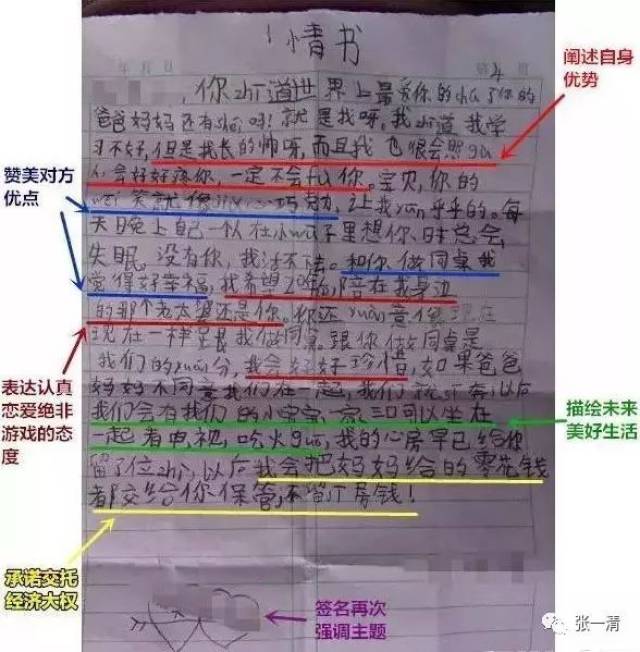 情书
年 月 日
第 4
,你zhī道世界上最爱你的chú了你的
爸爸妈妈还有shéi吗?就是我呀。我zhī道我学
习不好,但是我长的帅呀,而且我也很会照gù
会好好疼你,一定不会fù你。宝贝,你的
wēi笑就像 心巧克力,让我yūn乎乎的。每
天晚上自己一个人在小wū子里想你,时总会
失眠。没有你,我活不下去。和你做同桌我
觉得好幸福,我希望20年后陪在我身边
的那个老太婆还是你。你还yuàn意像现在
现在一样 跟我做同桌。跟你做同桌是
我们的yuán分,我会好好珍惜,如果爸爸
妈妈不同意我们在一起,我们就sī奔,以后
我们会有我们的小宝宝,一家三口可以坐在
一起看电视,吃火guō,我的心房早已给你
留了位zhì,以后我会把妈妈给的零花钱
都交给你保管,不留 房钱!
阐述自身
优势
赞美对方
优点
表达认真
恋爱绝非
游戏的态
度
描绘未来
美好生活
承诺交托
经济大权
签名再次
强调主题
张一清